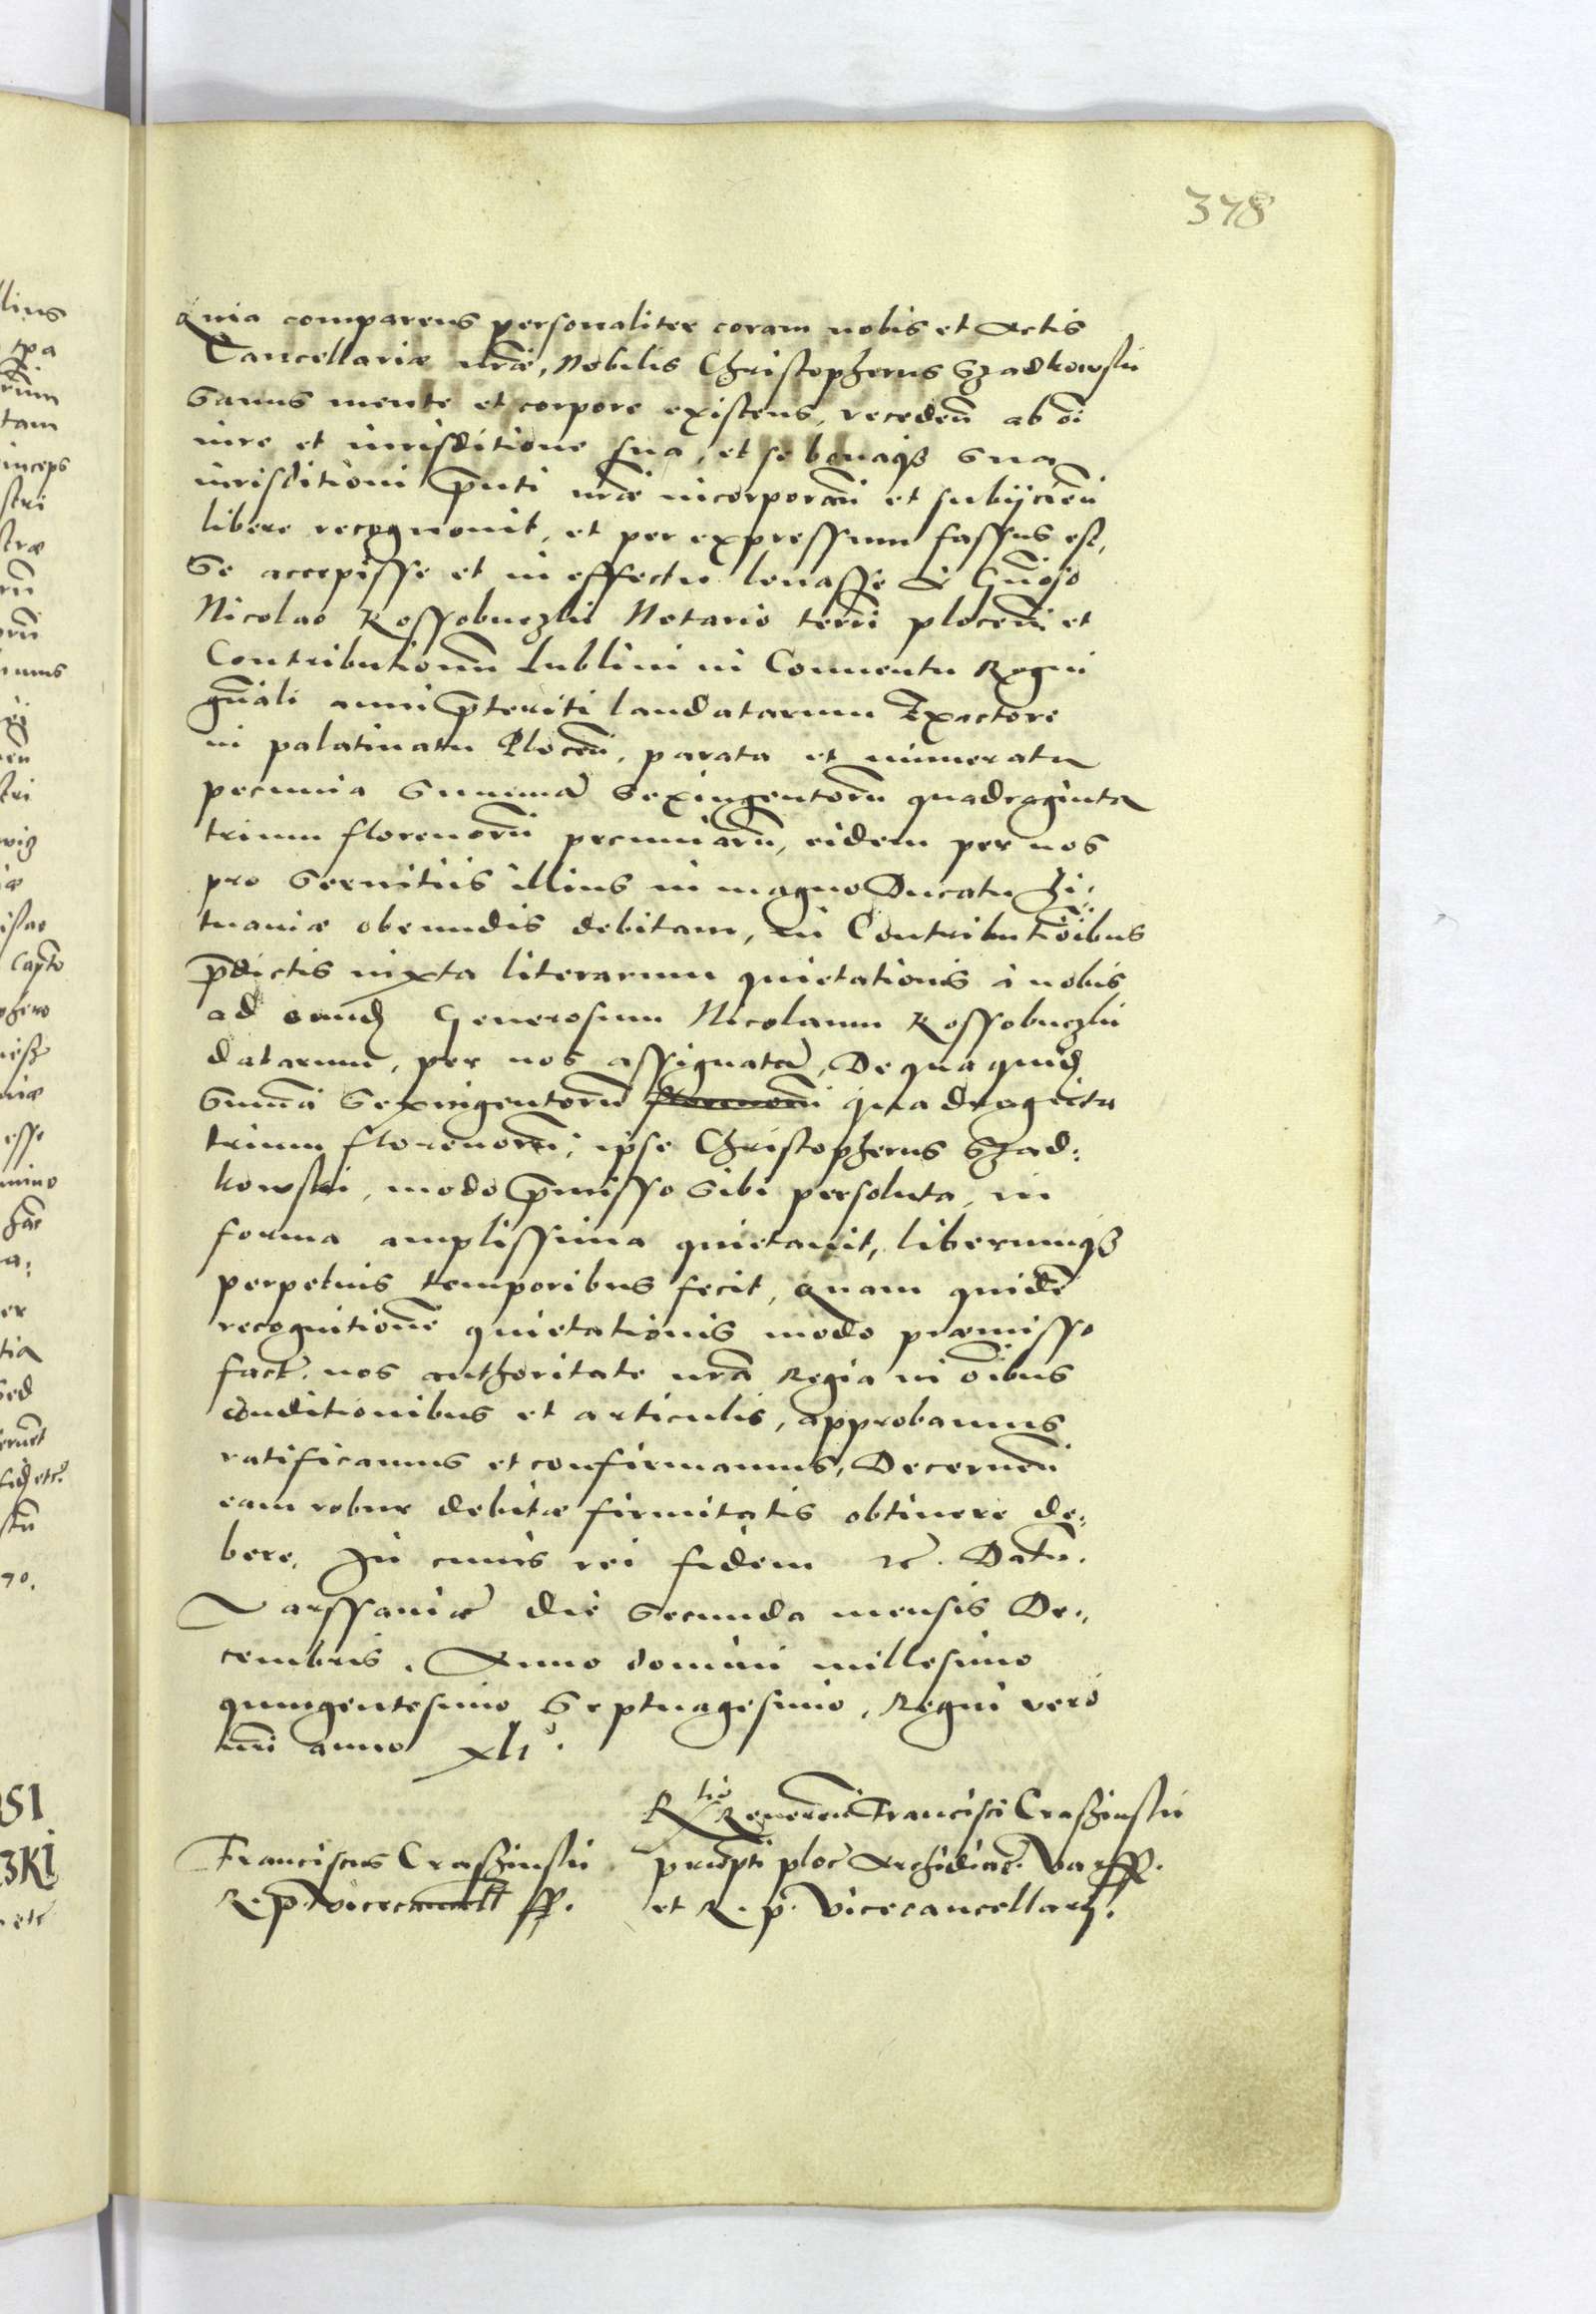 378
Quia comparens personaliter coram nobis et Actis
Cancellariæ nr̄æ, Nobilis Christopherus Szadkowski
Sanus mente et corpore existens, recedeñ ab oi
iure et iurisditione sua, et se bonaqȝ sua
iurisditioni p̄nti nr̄æ incorporañ et subijcieñ
libere recognouit, et per expressum fassus est,
Se accepisse et in effectu leuasse à Gn̄oso
Nicolao Kossobuczki Notario terrī ploceñ et
Contributionum Lublini in Conuentu Regni
gn̄ali anni p̄teriti laudatarum Exactore
in palatinatu Ploceñ, parata et numerata
pecunia Summā Sexingentorū quadraginta
trium florenorū pecuniarū, eidem per nos
pro Seruitiis illius in magno Ducatu Li:
tuaniæ obeundis debitam, in Contributiōibus
p̄dictis iuxta literarum quietationis à nobis
ad eund Generosum Nicolaum Kossobuczki
datarum, per nos assignatā, De qua quid
Summa Sexingentorū florenorū quadraginta
trium florenorū, ipse Christopherus Szad:
kowski, modo p̄misso sibi persoluta, in
forma amplissima quietauit, liberumqȝ
perpetuis temporibus fecit, Quam quidē
recognitionē quietationis modo præmisso
fact. nos authoritate nr̄a Regia in oībus
conditionibus et articulis, approbamus
ratificamus et confirmamus, Decerneñ
eam robur debitæ firmitatis obtinere de:
bere. In cuius rei fidem etc. Datū.
Varssauiæ die Secunda mensis De:
cembris. Anno domini millesimo
quingentesimo Septuagesimo, Regni vero
nr̄i anno xli°.
R<sup>tio</sup> Reuereñ Francisci Crasinskii
Franciscus Crasinskii præpti ploc̄ Archidiac̄. Varss.
R. p. Vicecancell ss. et R. p. Vicecancellarij.